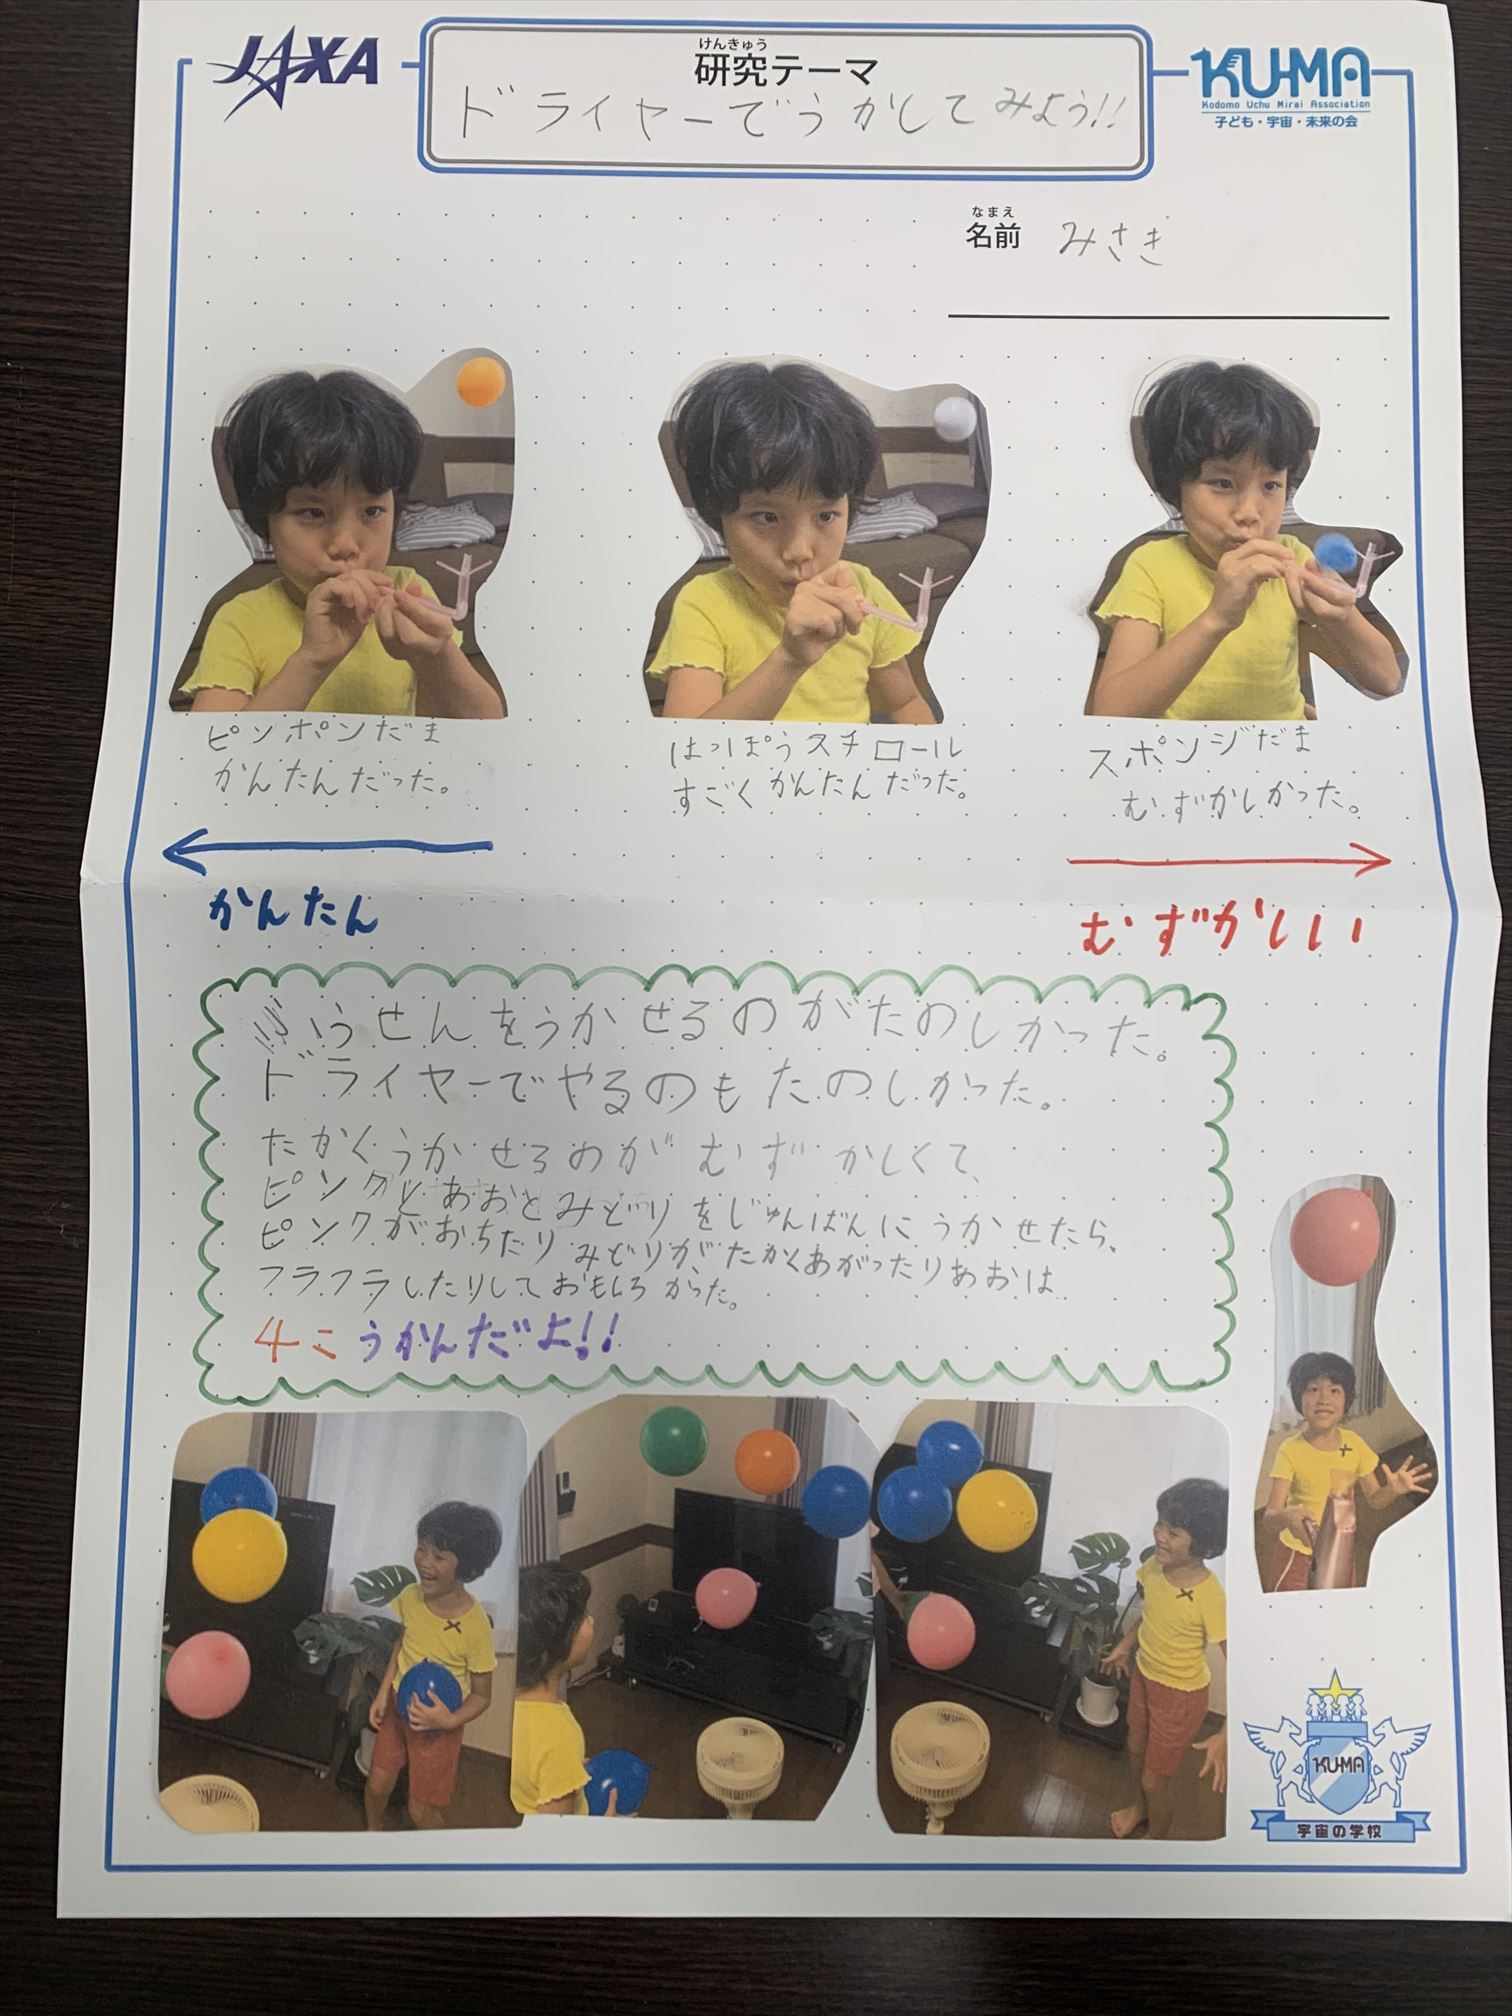 JAXA
けんきゅう
研究テーマ
ドライヤーでうかしてみよう!!
KU-MA
Kodomo Uchu Mirai Association
子ども・宇宙・未来の会
なまえ
名前 みさき
ピンポンだま
かんたんだった。
はっぽうスチロール
すごくかんたんだった。
スポンジだま
むずかしかった。
かんたん
むずかしい
うせんをうかせるのがたのしかった。
ドライヤーでやるのもたのしかった。
たかくうかせるのがむずかしくて、
ピンクとあおとみどりをじゅんばんにうかせたら、
ピンクがおちたりみどりが、たかくあがったりあおは
フラフラしたりしておもしろかった。
4こうかんだよ!!
KU-MA
宇宙の学校